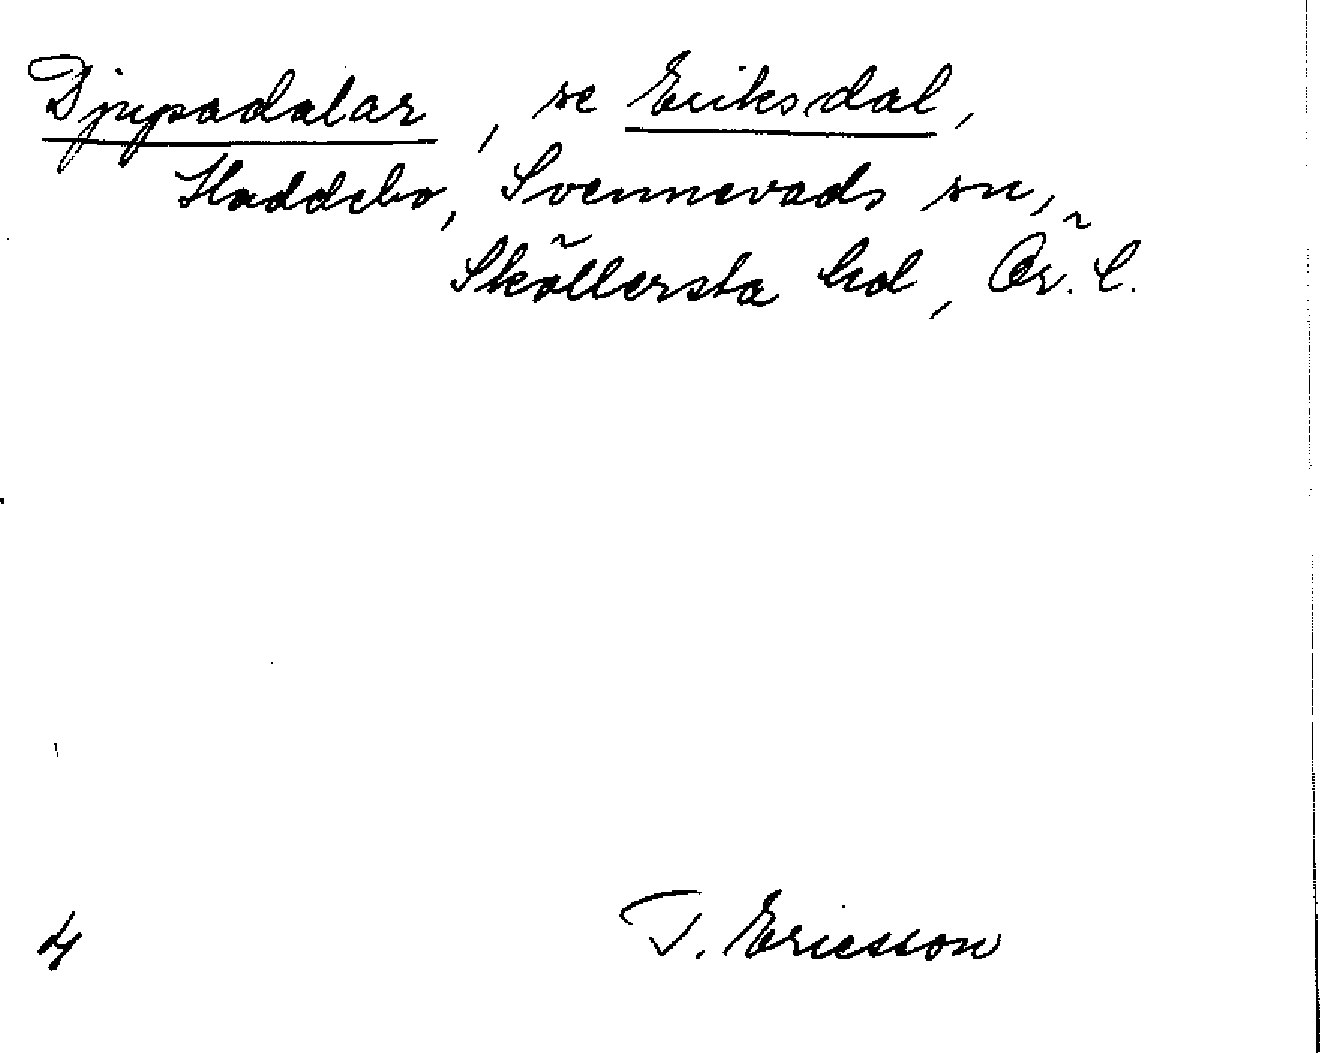 Djupadalar, se Eriksdal,
Haddebo, Svennevads sn,
Sköllersta hd, Ör. l.
4 T. Ericsson